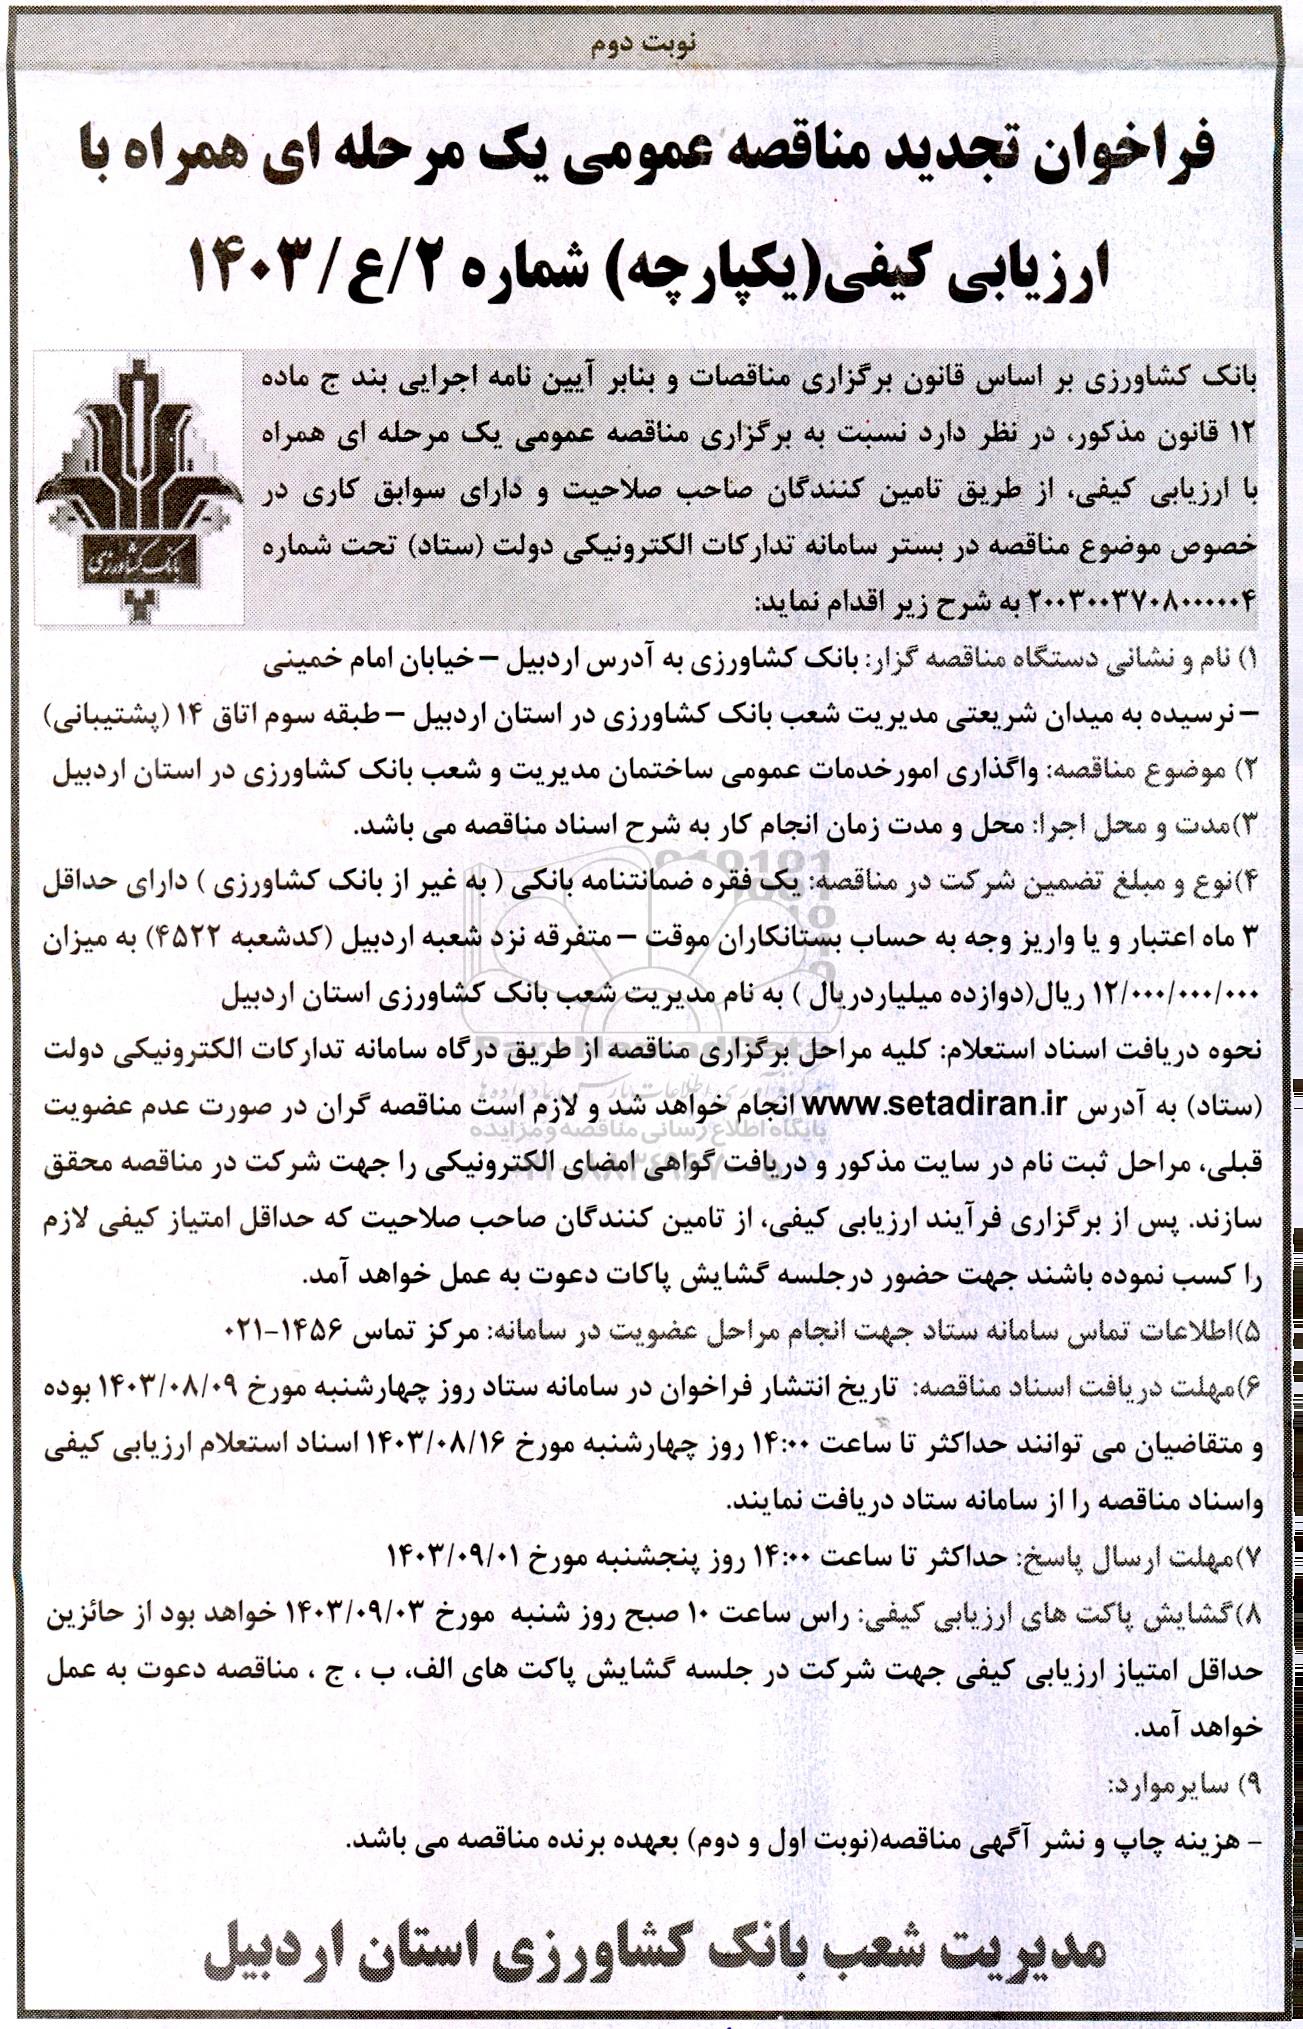 نوبت دوم
فراخوان تجدید مناقصه عمومی یک مرحله ای همراه با
ارزیابی کیفی(یکپارچه) شماره ۲/ع/۱۴۰۳
بانک کشاورزی بر اساس قانون برگزاری مناقصات و بنابر آیین نامه اجرایی بند ج ماده
۱۲ قانون مذکور، در نظر دارد نسبت به برگزاری مناقصه عمومی یک مرحله ای همراه
با ارزیابی کیفی، از طریق تامین کنندگان صاحب صلاحیت و دارای سوابق کاری در
خصوص موضوع مناقصه در بستر سامانه تدارکات الکترونیکی دولت (ستاد) تحت شماره
۲۰۰۳۰۰۳۷۰۸۰۰۰۰۰۴ به شرح زیر اقدام نماید:
بانک کشاورزی
۱) نام و نشانی دستگاه مناقصه گزار: بانک کشاورزی به آدرس اردبیل – خیابان امام خمینی
– نرسیده به میدان شریعتی مدیریت شعب بانک کشاورزی در استان اردبیل – طبقه سوم اتاق ۱۴ (پشتیبانی)
۲) موضوع مناقصه: واگذاری امورخدمات عمومی ساختمان مدیریت و شعب بانک کشاورزی در استان اردبیل
۳)مدت و محل اجرا: محل و مدت زمان انجام کار به شرح اسناد مناقصه می باشد.
۴)نوع و مبلغ تضمین شرکت در مناقصه: یک فقره ضمانتنامه بانکی ( به غیر از بانک کشاورزی ) دارای حداقل
۳ ماه اعتبار و یا واریز وجه به حساب بستانکاران موقت – متفرقه نزد شعبه اردبیل (کدشعبه ۴۵۲۲) به میزان
۱۲/۰۰۰/۰۰۰/۰۰۰ ریال(دوازده میلیاردریال ) به نام مدیریت شعب بانک کشاورزی استان اردبیل
نحوه دریافت اسناد استعلام: کلیه مراحل برگزاری مناقصه از طریق درگاه سامانه تدارکات الکترونیکی دولت
(ستاد) به آدرس www.setadiran.ir انجام خواهد شد و لازم است مناقصه گران در صورت عدم عضویت
پایگاه اطلاع رسانی مناقصه و مزایده
قبلی، مراحل ثبت نام در سایت مذکور و دریافت گواهی امضای الکترونیکی را جهت شرکت در مناقصه محقق
سازند. پس از برگزاری فرآیند ارزیابی کیفی، از تامین کنندگان صاحب صلاحیت که حداقل امتیاز کیفی لازم
را کسب نموده باشند جهت حضور درجلسه گشایش پاکات دعوت به عمل خواهد آمد.
۵)اطلاعات تماس سامانه ستاد جهت انجام مراحل عضویت در سامانه: مرکز تماس ۱۴۵۶-۰۲۱
۶)مهلت دریافت اسناد مناقصه: تاریخ انتشار فراخوان در سامانه ستاد روز چهارشنبه مورخ ۱۴۰۳/۰۸/۰۹ بوده
و متقاضیان می توانند حداکثر تا ساعت ۱۴:۰۰ روز چهارشنبه مورخ ۱۴۰۳/۰۸/۱۶ اسناد استعلام ارزیابی کیفی
واسناد مناقصه را از سامانه ستاد دریافت نمایند.
۷)مهلت ارسال پاسخ: حداکثر تا ساعت ۱۴:۰۰ روز پنجشنبه مورخ ۱۴۰۳/۰۹/۰۱
۸)گشایش پاکت های ارزیابی کیفی: راس ساعت ۱۰ صبح روز شنبه مورخ ۱۴۰۳/۰۹/۰۳ خواهد بود از حائزین
حداقل امتیاز ارزیابی کیفی جهت شرکت در جلسه گشایش پاکت های الف، ب ، ج ، مناقصه دعوت به عمل
خواهد آمد.
۹) سایرموارد:
- هزینه چاپ و نشر آگهی مناقصه(نوبت اول و دوم) بعهده برنده مناقصه می باشد.
مدیریت شعب بانک کشاورزی استان اردبیل